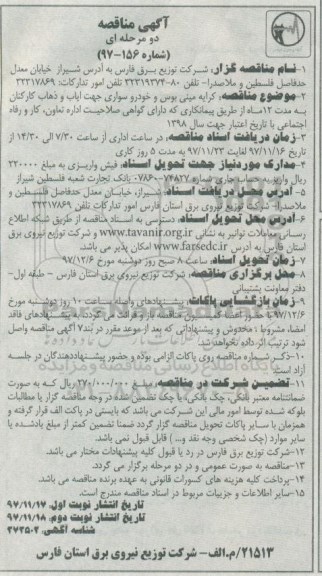 آگهی مناقصه
دو مرحله ای
(شماره ۱۵۶-۹۷)
۱-نام مناقصه گزار: شرکت توزیع برق فارس به آدرس شیراز خیابان معدل
حدفاصل فلسطین و ملاصدرا- تلفن ۸۰-۳۲۳۱۹۳۷۴ تلفن تدارکات: ۳۲۳۱۷۸۶۹
۲-موضوع مناقصه: کرایه مینی بوس و خودرو سواری جهت ایاب و ذهاب کارکنان
به مدت ۱۲ ماه از طریق پیمانکاری که دارای گواهی صلاحیت اداره تعاون، کار و رفاه
اجتماعی با تاریخ اعتبار جهت سال ۱۳۹۸
۳-زمان دریافت اسناد مناقصه: در ساعت اداری از ساعت ۷/۳۰ الی ۱۴/۳۰ از
تاریخ ۹۷/۱۱/۱۶ لغایت ۹۷/۱۱/۲۳ به مدت ۵ روز کاری
۴-مدارک موردنیاز جهت تحویل اسناد: فیش واریزی به مبلغ ۲۲۰۰۰۰
ریال واریز به حساب جاری شماره بانک تجارت شعبه فلسطین شیراز
۵- آدرس محل دریافت اسناد: شیراز، خیابان معدل حدفاصل فلسطین و
ملاصدرا- شرکت توزیع نیروی برق استان فارس امور تدارکات تلفن ۳۲۳۱۷۸۶۹
۶-آدرس محل تحویل اسناد: دسترسی به اسناد مناقصه از طریق شبکه اطلاع
رسانی معاملات توانیر به نشانی www.tavanir.org.ir و شرکت توزیع نیروی برق
استان فارس به آدرس www.farsedc.ir امکان پذیر می باشد.
۷- زمان تحویل اسناد: ساعت ۸ صبح روز دوشنبه مورخ ۹۷/۱۲/۶
۸-محل برگزاری مناقصه: شرکت توزیع نیروی برق استان فارس - طبقه اول-
دفتر معاونت پشتیبانی
۹-زمان بازگشایی پاکات: پیشنهادهای واصله ساعت ۱۰ روز دوشنبه مورخ
۹۷/۱۲/۶ کمیسیون مناقصه باز و قرائت می گردد، به پیشنهادهای فاقد
امضا، مشروط، مخدوش و پیشنهاداتی که بعد از موعد مقرر در بند ۷ آگهی مناقصه واصل
شود ترتیب اثر داده نخواهد شد.
۱۰-ذکر شماره مناقصه روی پاکات الزامی بوده و حضور پیشنهاددهندگان در جلسه
آزاد است
۱۱-تضمین شرکت در مناقصه: مبلغ ۲۷۰/۰۰۰/۰۰۰ ریال که به صورت
ضمانتنامه معتبر بانکی، چک بانکی، یا چک تضمین شده در وجه مناقصه گزار یا مطالبات
بلوکه شده توسط امور مالی این شرکت می باشد که بایستی در پاکت الف قرار گرفته و
همزمان با سایر پاکات تحویل مناقصه گزار گردد ضمنا تضمین کمتر از مبلغ یادشده یا
سایر موارد (چک شخصی وجه نقد و...) قابل قبول نمی باشد.
۱۲-شرکت توزیع برق فارس در رد یا قبول کلیه پیشنهادات مختار می باشد.
۱۳-مناقصه به صورت عمومی و در دو مرحله برگزار می گردد.
۱۴-پرداخت کلیه هزینه های کسورات قانونی به عهده برنده مناقصه می باشد.
۱۵-سایر اطلاعات و جزییات مربوط در اسناد مناقصه مندرج است.
تاریخ انتشار نوبت اول: ۹۷/۱۱/۱۷
تاریخ انتشار نوبت دوم: ۹۷/۱۱/۱۸
شناسه آگهی: ۳۷۳۵۰۲
۲۱۵۱۳/م.الف- شرکت توزیع نیروی برق استان فارس